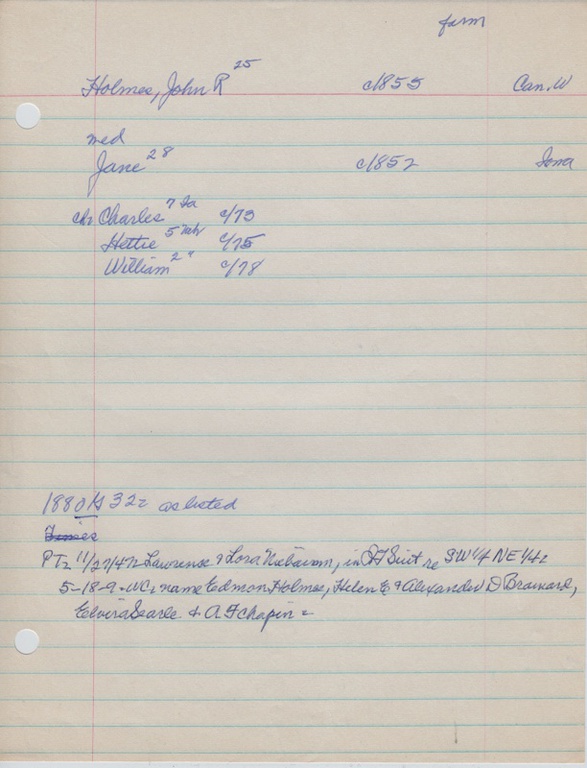 farm
Holmes, John R 25 c1855 Can. W
med
Jane 28 c1852 Iowa
ch: Charles 7 Ia c/73
Hettie 5 Neb c/75
William 2 " c/78
1880 322 as listed
PT: 11/27/47: Lawrence & Lora in QT Suit re SW 1/4 NE 1/4:
5-18-9 - WC: name Edmon Holmes, Helen E & Alexander D Brainard,
Elvira Searle & A F Chapin -